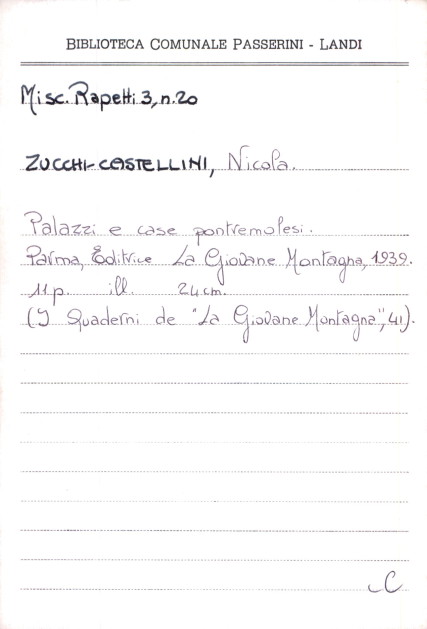 BIBLIOTECA COMUNALE PASSERINI - LANDI
Misc. Rapetti 3, n. 20
ZUCCHI-CASTELLINI, Nicola.
Palazzi e case pontremolesi.
Parma, Editrice La Giovane Montagna, 1939.
11 p. ill. 24 cm.
(I Quaderni de "La Giovane Montagna", 41).
C